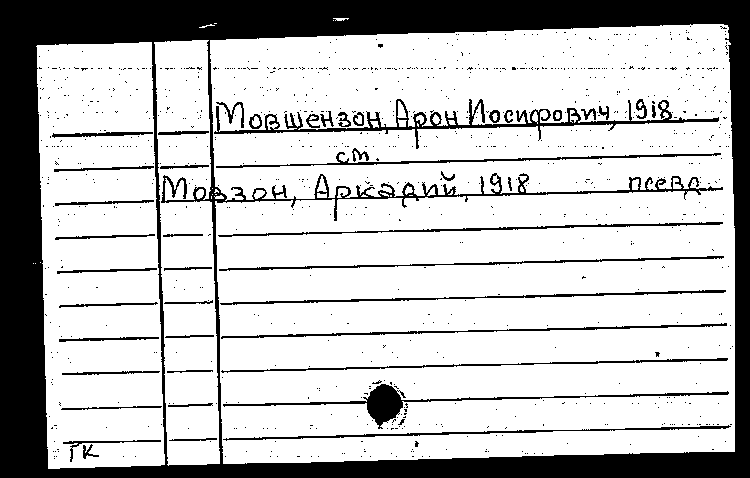 Мовшензон, Арон Иосифович, 1918.
см.
Мовзон, Аркадий, 1918 псевд.
ГК